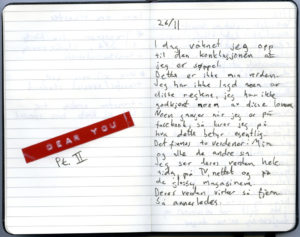 DEAR YOU!
Pt. II
26/11
I dag våknet jeg opp
til den konklusjonen at
jeg er søppel.
Dette er ikke min verden.
Jeg har ikke lagd noen av
disse reglene, jeg har ikke
godkjent noen av disse lovene.
Noen ganger når jeg er på
facebook, så lurer jeg på
hva dette betyr egentlig.
Det finnes to verdener: Min
og alle de andre sin.
Jeg ser deres verden hele
tida, på TV, nettet og på
de glossy magasinene.
Deres verden virker så fjern.
Så annerledes.